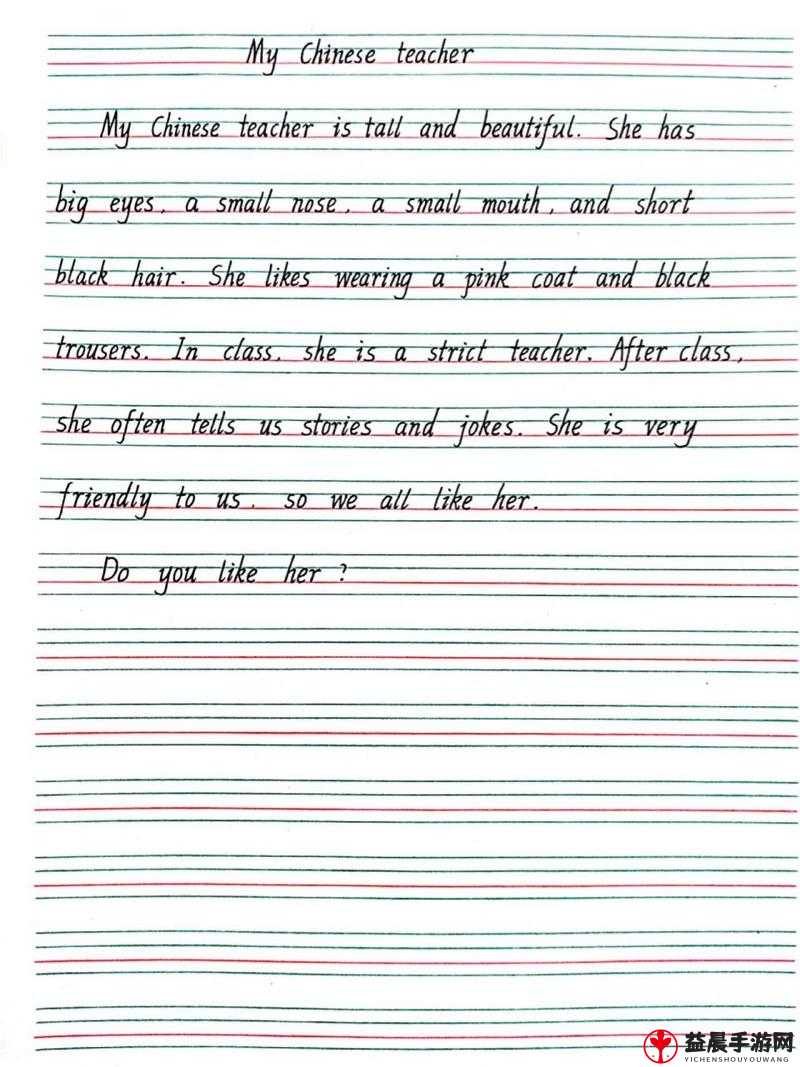 My Chinese teacher
My Chinese teacher is tall and beautiful. She has
big eyes, a small nose, a small mouth, and short
black hair. She likes wearing a pink coat and black
trousers. In class, she is a strict teacher. After class,
she often tells us stories and jokes. She is very
friendly to us, so we all like her.
Do you like her ?
益晨手游网
YICHENSHOUYOUWANG